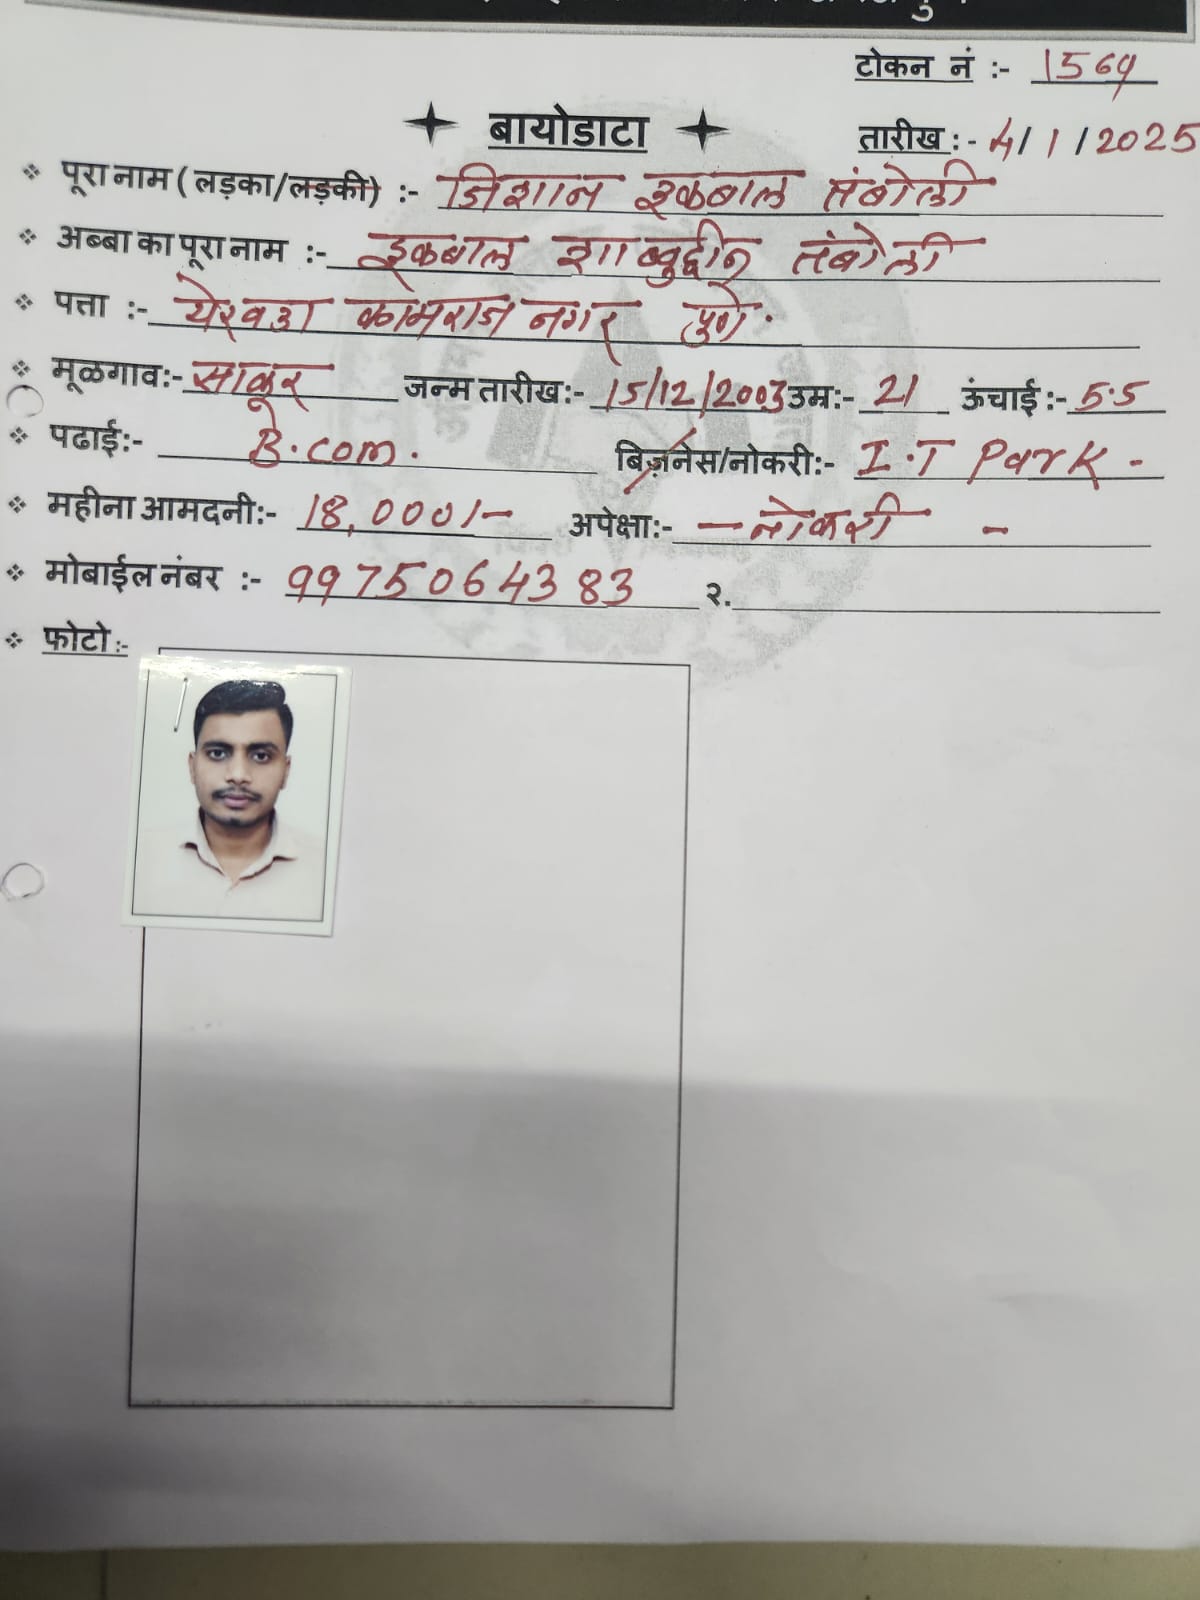 टोकन नं :- 1564
बायोडाटा
तारीख :- 4/1/2025
पूरा नाम ( लड़का/लड़की) :- जिशान इकबाल तंबोली
अब्बा का पूरा नाम :- इकबाल शाब्बुद्दीन तंबोली
पत्ता :- येरवडा कामराज नगर पुणे.
मूळगाव:- साकूर जन्म तारीख:- 15/12/2003 उम्र:- 21 ऊंचाई :- 5.5
पढाई:- B.com. बिज़नेस/नोकरी:- I.T Park -
महीना आमदनी:- 18,000/- अपेक्षा:- - नोकरी -
मोबाईल नंबर :- 9975064383 २.
फोटो :-